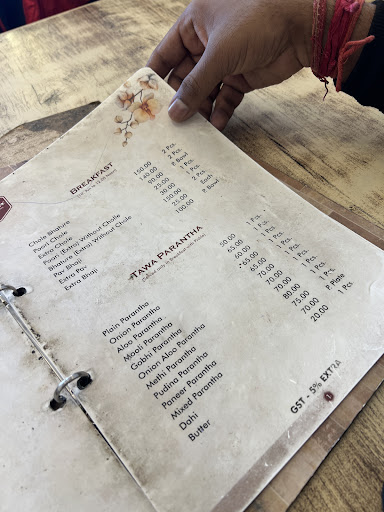 BREAKFAST
Chole Bhature 150.00 2 Pcs.
Poori Chole 140.00 2 Pcs.
Extra Chole 90.00 P. Bowl
Poori (Extra) Without Cholle 25.00 1 Pcs.
Bhature (Extra) Without Cholle 30.00
Pav Bhaji 150.00 2 Pcs.
Extra Pav 25.00 Each
Extra Bhaji 100.00 P. Bowl
TAWA PARANTHA
Plain Parantha 50.00 1 Pcs.
Onion Parantha 55.00 1 Pcs.
Aloo Parantha 60.00 1 Pcs.
Mooli Parantha 65.00 1 Pcs.
Gobhi Parantha 65.00 1 Pcs.
Onion Aloo Parantha 70.00 1 Pcs.
Methi Parantha 70.00 1 Pcs.
Pudina Parantha 70.00 1 Pcs.
Paneer Parantha 80.00 1 Pcs.
Mixed Parantha 75.00 1 Pcs.
Dahi 70.00 P. Plate
Butter 20.00 1 Pcs.
GST - 5% EXTRA